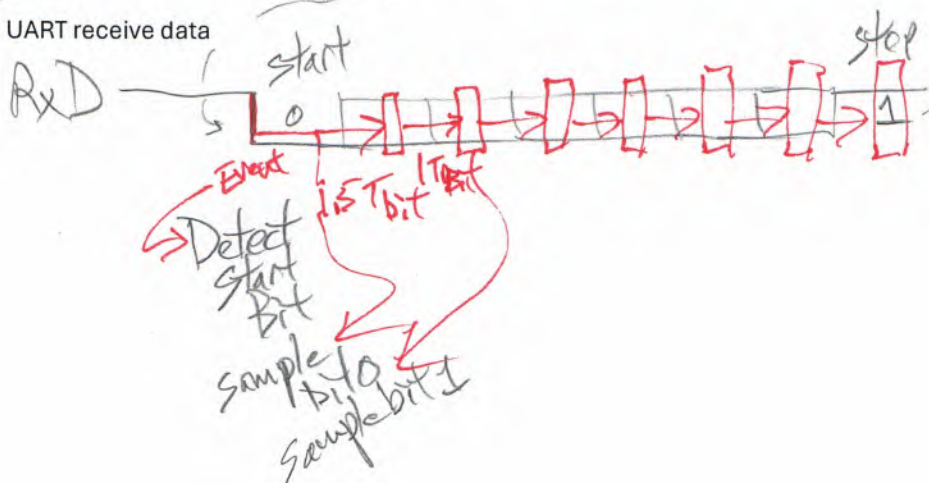 UART receive data
RxD
start
0
stop
1
Event
1.5 Tbit
1 TBit
Detect
start
Bit
sample
bit 0
sample bit 1